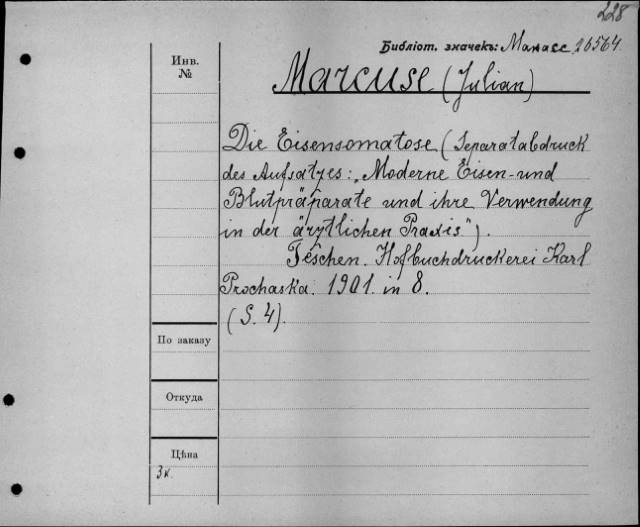 228
Библіот. значекъ: Манасс 26564
Инв.
№
Marcuse (Julian)
Die Eisensomatose (Separatabdruck
des Aufsatzes: „Moderne Eisen- und
Blutpräparate und ihre Verwendung
in der ärztlichen Praxis").
Teschen. Hofbuchdruckerei Karl
Prochaska. 1901. in 8.
(S. 4).
По заказу
Откуда
Цѣна
3 к.